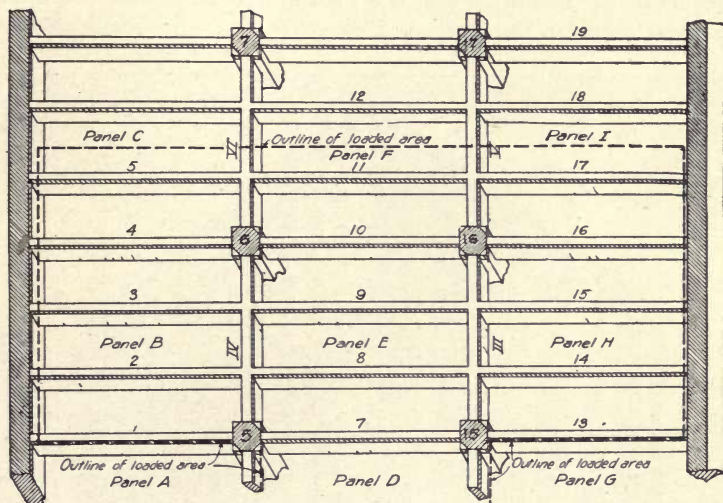 7 17 19
12 18
Panel C VI Outline of loaded area V Panel I
Panel F
5 11 17
4 6 10 16 16
3 9 15
Panel B IV Panel E III Panel H
2 8 14
1 5 7 15 13
Outline of loaded area Outline of loaded area
Panel A Panel D Panel G